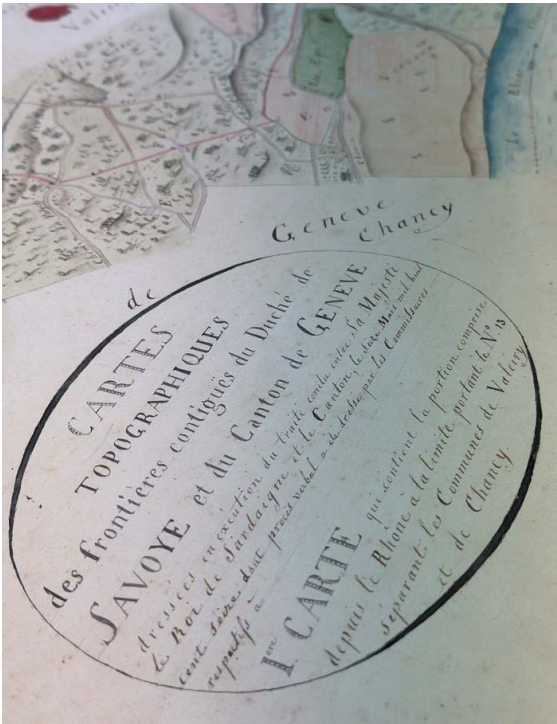 Valeiry
Le Rhône
de
Geneve
Chancy
CARTES
TOPOGRAPHIQUES
des frontières contiguës du Duché de
SAVOYE et du Canton de GENEVE
dressées en exécution du traité conclu entre Sa Majesté
le Roi de Sardaigne et le Canton, le seize Mars mil huit
cent seize dont procès verbal a été dressé par les Commissaires
respectifs à
Iere CARTE qui contient la portion comprise
depuis le Rhône à la limite portant le No. 13
séparant les Communes de Valeiry
et de Chancy